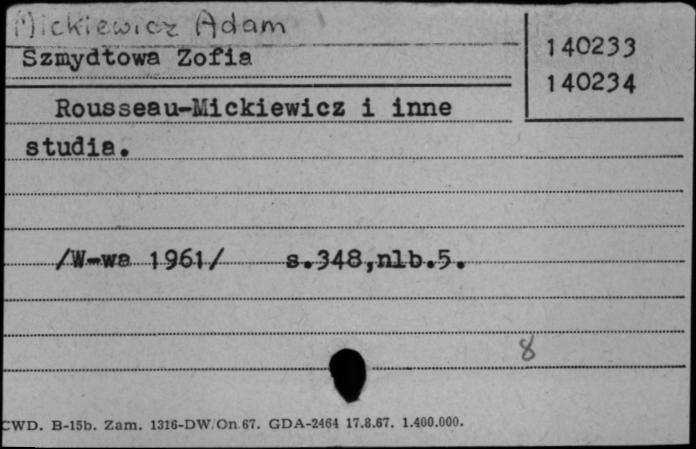 Mickiewicz Adam
Szmydtowa Zofia
140233
140234
Rousseau-Mickiewicz i inne
studia.
/W-wa 1961/ s.348,nlb.5.
8
CWD. B-15b. Zam. 1316-DW/On 67. GDA-2464 17.8.67. 1.400.000.